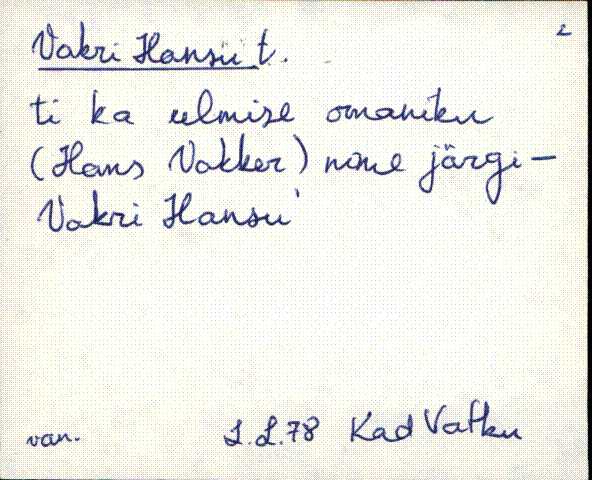 2
Vakri Hansu t.
ti ka eelmise omaniku
(Hans Vakker) nime järgi –
Vakri Hansu'
van. L.L.78 Kad Vatku